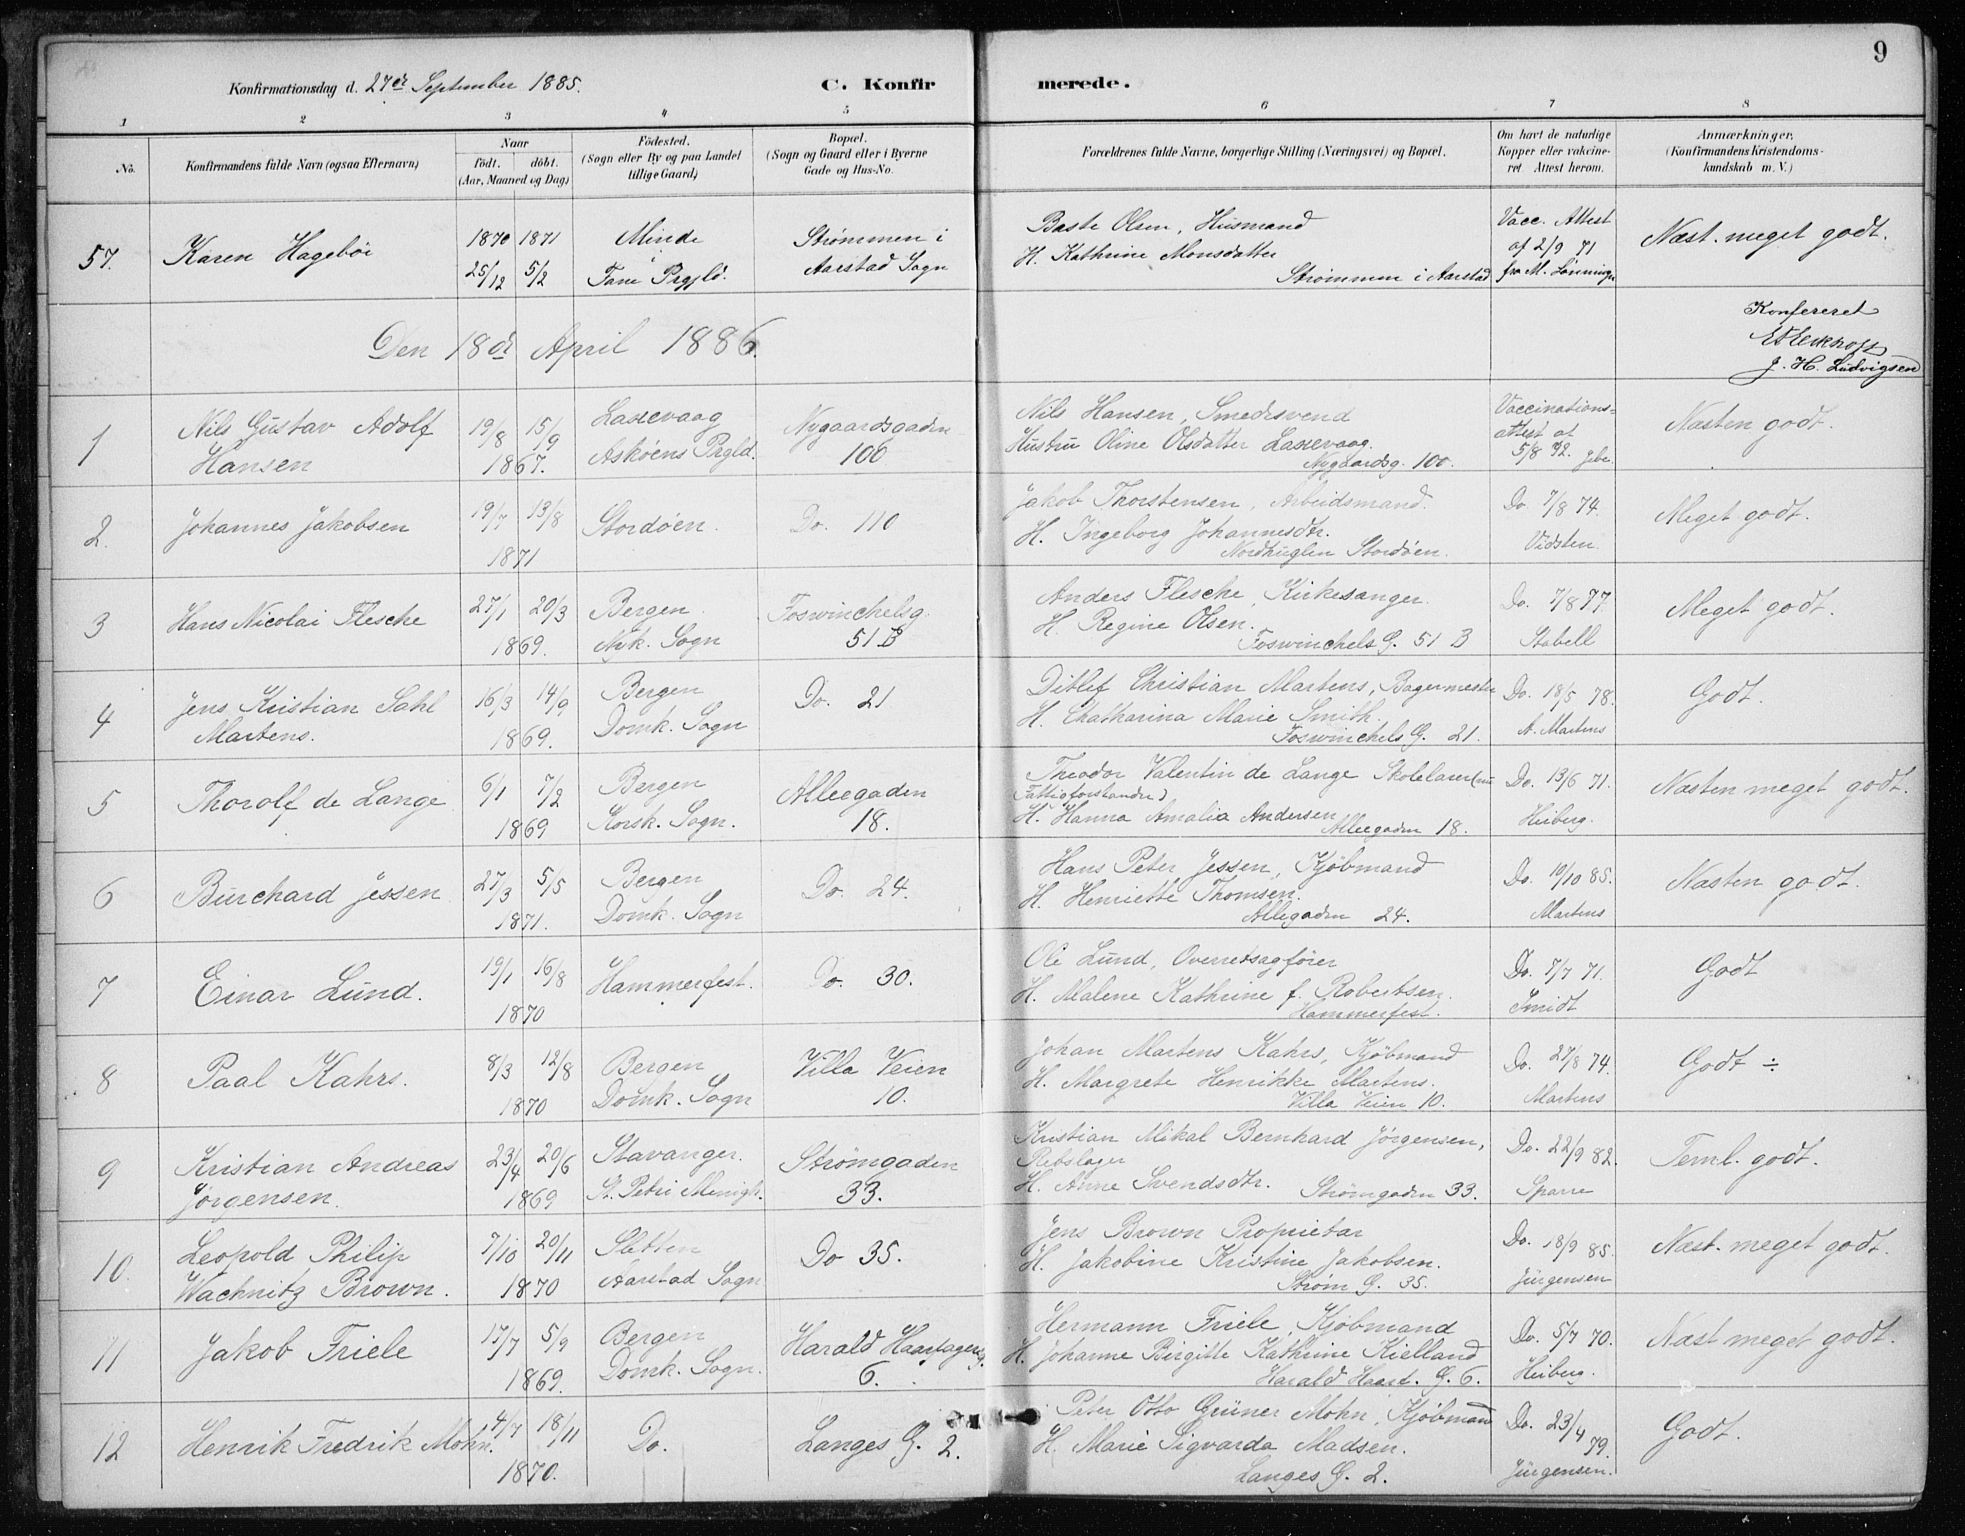 9
Konfirmationsdag d. 27de September 1885.
C. Konfirmerede.
1 2 3 4 5 6 7 8
No.
Konfirmandens fulde Navn (ogsaa Efternavn)
Naar
födt. döbt.
(Aar, Maaned og Dag)
Födested.
(Sogn eller By og paa Landet
tillige Gaard)
Bopæl.
(Sogn og Gaard eller i Byerne
Gade og Hus-No.
Forældrenes fulde Navne, borgerlige Stilling (Næringsvei) og Bopæl.
Om havt de naturlige
Kopper eller vakcine-
ret. Attest herom.
Anmærkninger.
(Konfirmandens Kristendoms-
kundskab m. V.)
57. Karen Hagebøi
1870 1871
25/12 5/2
Minde
Fane Prgjld.
Strømmen i
Aarstad Sogn
Baste Olsen, Husmand
H. Kathrine Monsdatter
Strømmen i Aarstad
Vacc. Attest
af 2/9 71
fra M. Lönningen
Næst. meget godt.
Den 18de April 1886.
Konfereret
J. H. Ludvigsen
1 Nils Gustav Adolf
Hansen
19/8 15/9
1867.
Laxevaag
Askøens Prgld.
Nygaardsgaden
100
Nils Hansen, Smedesvend
Hustru Oline Olsdatter Laxevaag.
Nygaardsg. 100.
Vaccinations-
attest af
5/8 72.
Næsten godt.
2. Johannes Jakobsen
19/7 13/8
1871
Stordøen.
Do. 110
Jakob Thorstensen, Arbeidsmand.
H. Ingeborg Johannesdtr.
Nordhuglen Stordøen.
Do. 7/8 74.
Vidsten.
Meget godt.
3 Hans Nicolai Flesche
27/1 20/3
1869.
Bergen
Nyk. Sogn
Foswinchelsg.
51 B
Anders Flesche, Kirkesanger.
H. Regine Olsen.
Foswinchels G. 51 B
Do. 7/8 77.
Stabell
Meget godt.
4 Jens Kristian Sahl
Martens.
16/3 14/9
1869.
Bergen
Domk. Sogn
Do. 21
Ditlef Christian Martens, Bagermester
H. Chatharina Marie Smith.
Foswinchels G. 21.
Do. 18/5 78.
A. Martens
Godt.
5 Thorolf de Lange
6/1 7/2
1869
Bergen
Korsk. Sogn.
Alleegaden
18.
Theodor Valentin de Lange Skolelærer (nu
Fattigforstander)
H. Hanna Amalia Andersen
Alleegaden 18.
Do. 13/6 71.
Heiberg.
Næsten meget godt.
6 Burchard Jessen
27/3 5/5
1871.
Bergen
Domk. Sogn
Do. 24.
Hans Peter Jessen, Kjøbmand
H. Henriette Thomsen.
Allegaden 24.
Do. 10/10 85.
Martens
Næsten godt.
7 Einar Lund.
19/1 16/8
1870
Hammerfest.
Do. 30.
Ole Lund, Overretsagfører
H. Malene Kathrine f. Robertsen.
Hammerfest.
Do. 7/7 71.
Smidt
Godt
8 Paal Kahrs.
8/3 12/8
1870
Bergen
Domk. Sogn
Villa Veien
10.
Johan Martens Kahrs, Kjøbmand
H. Margrete Henrikke Martens.
Villa Veien 10.
Do. 27/8 74.
Martens
Godt ÷
9 Kristian Andreas
Jørgensen.
23/4 20/6
1869
Stavanger.
St. Petri Menigh.
Strømgaden
33.
Kristian Mikal Bernhard Jørgensen,
Rebslager
H. Anne Svendsdtr. Strømgaden 33.
Do. 22/9 82.
Sparre
Teml. godt.
10. Leopold Philip
Wachnitz Brown.
7/10 20/11
1870
Sletten
Aarstad Sogn
Do 35.
Jens Brown Proprietær
H. Jakobine Kristine Jakobsen.
Strøm G. 35.
Do. 18/9 85.
Jürgensen
Næst. meget godt.
11 Jakob Friele
17/7 5/9
1869.
Bergen
Domk. Sogn.
Harald Haarfagersg.
6.
Hermann Friele, Kjøbmand
H. Johanne Birgitte Kathrine Kielland
Harald Haarf. G. 6.
Do. 5/7 70.
Heiberg.
Næst meget godt.
12 Henrik Fredrik Mohn.
4/7 18/11
1870.
Do.
Langes G. 2.
Peter Otto Grüner Mohn, Kjøbmand
H. Marie Sigvarda Madsen.
Langes G. 2.
Do. 23/4 79.
Jürgensen.
Godt.